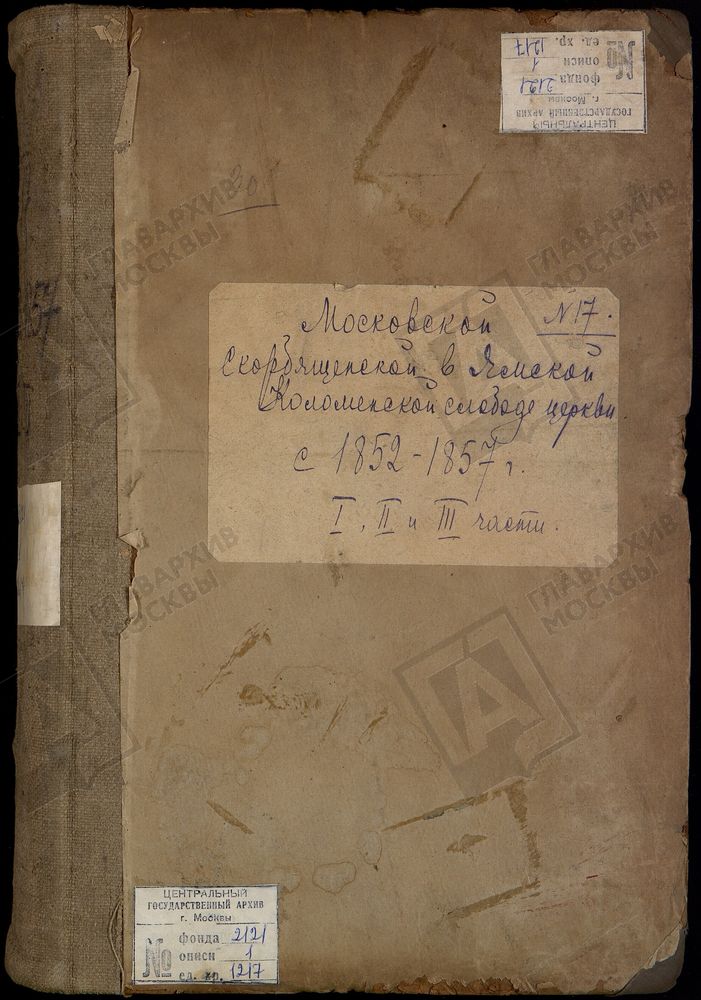 ЦЕНТРАЛЬНЫЙ
ГОСУДАРСТВЕННЫЙ АРХИВ
г. Москвы
№ фонда 2121
описи 1
ед. хр. 1217
Московской № 17.
Скорбященской в Ямской
Коломенской слободе церкви.
с 1852-1857 г.
I, II и III части.
ЦЕНТРАЛЬНЫЙ
ГОСУДАРСТВЕННЫЙ АРХИВ
г. Москвы
№ фонда 2121
описи 1
ед. хр. 1217
ГЛАВАРХИВ
МОСКВЫ
ГЛАВАРХИВ
МОСКВЫ
ГЛАВАРХИВ
МОСКВЫ
ГЛАВАРХИВ
МОСКВЫ